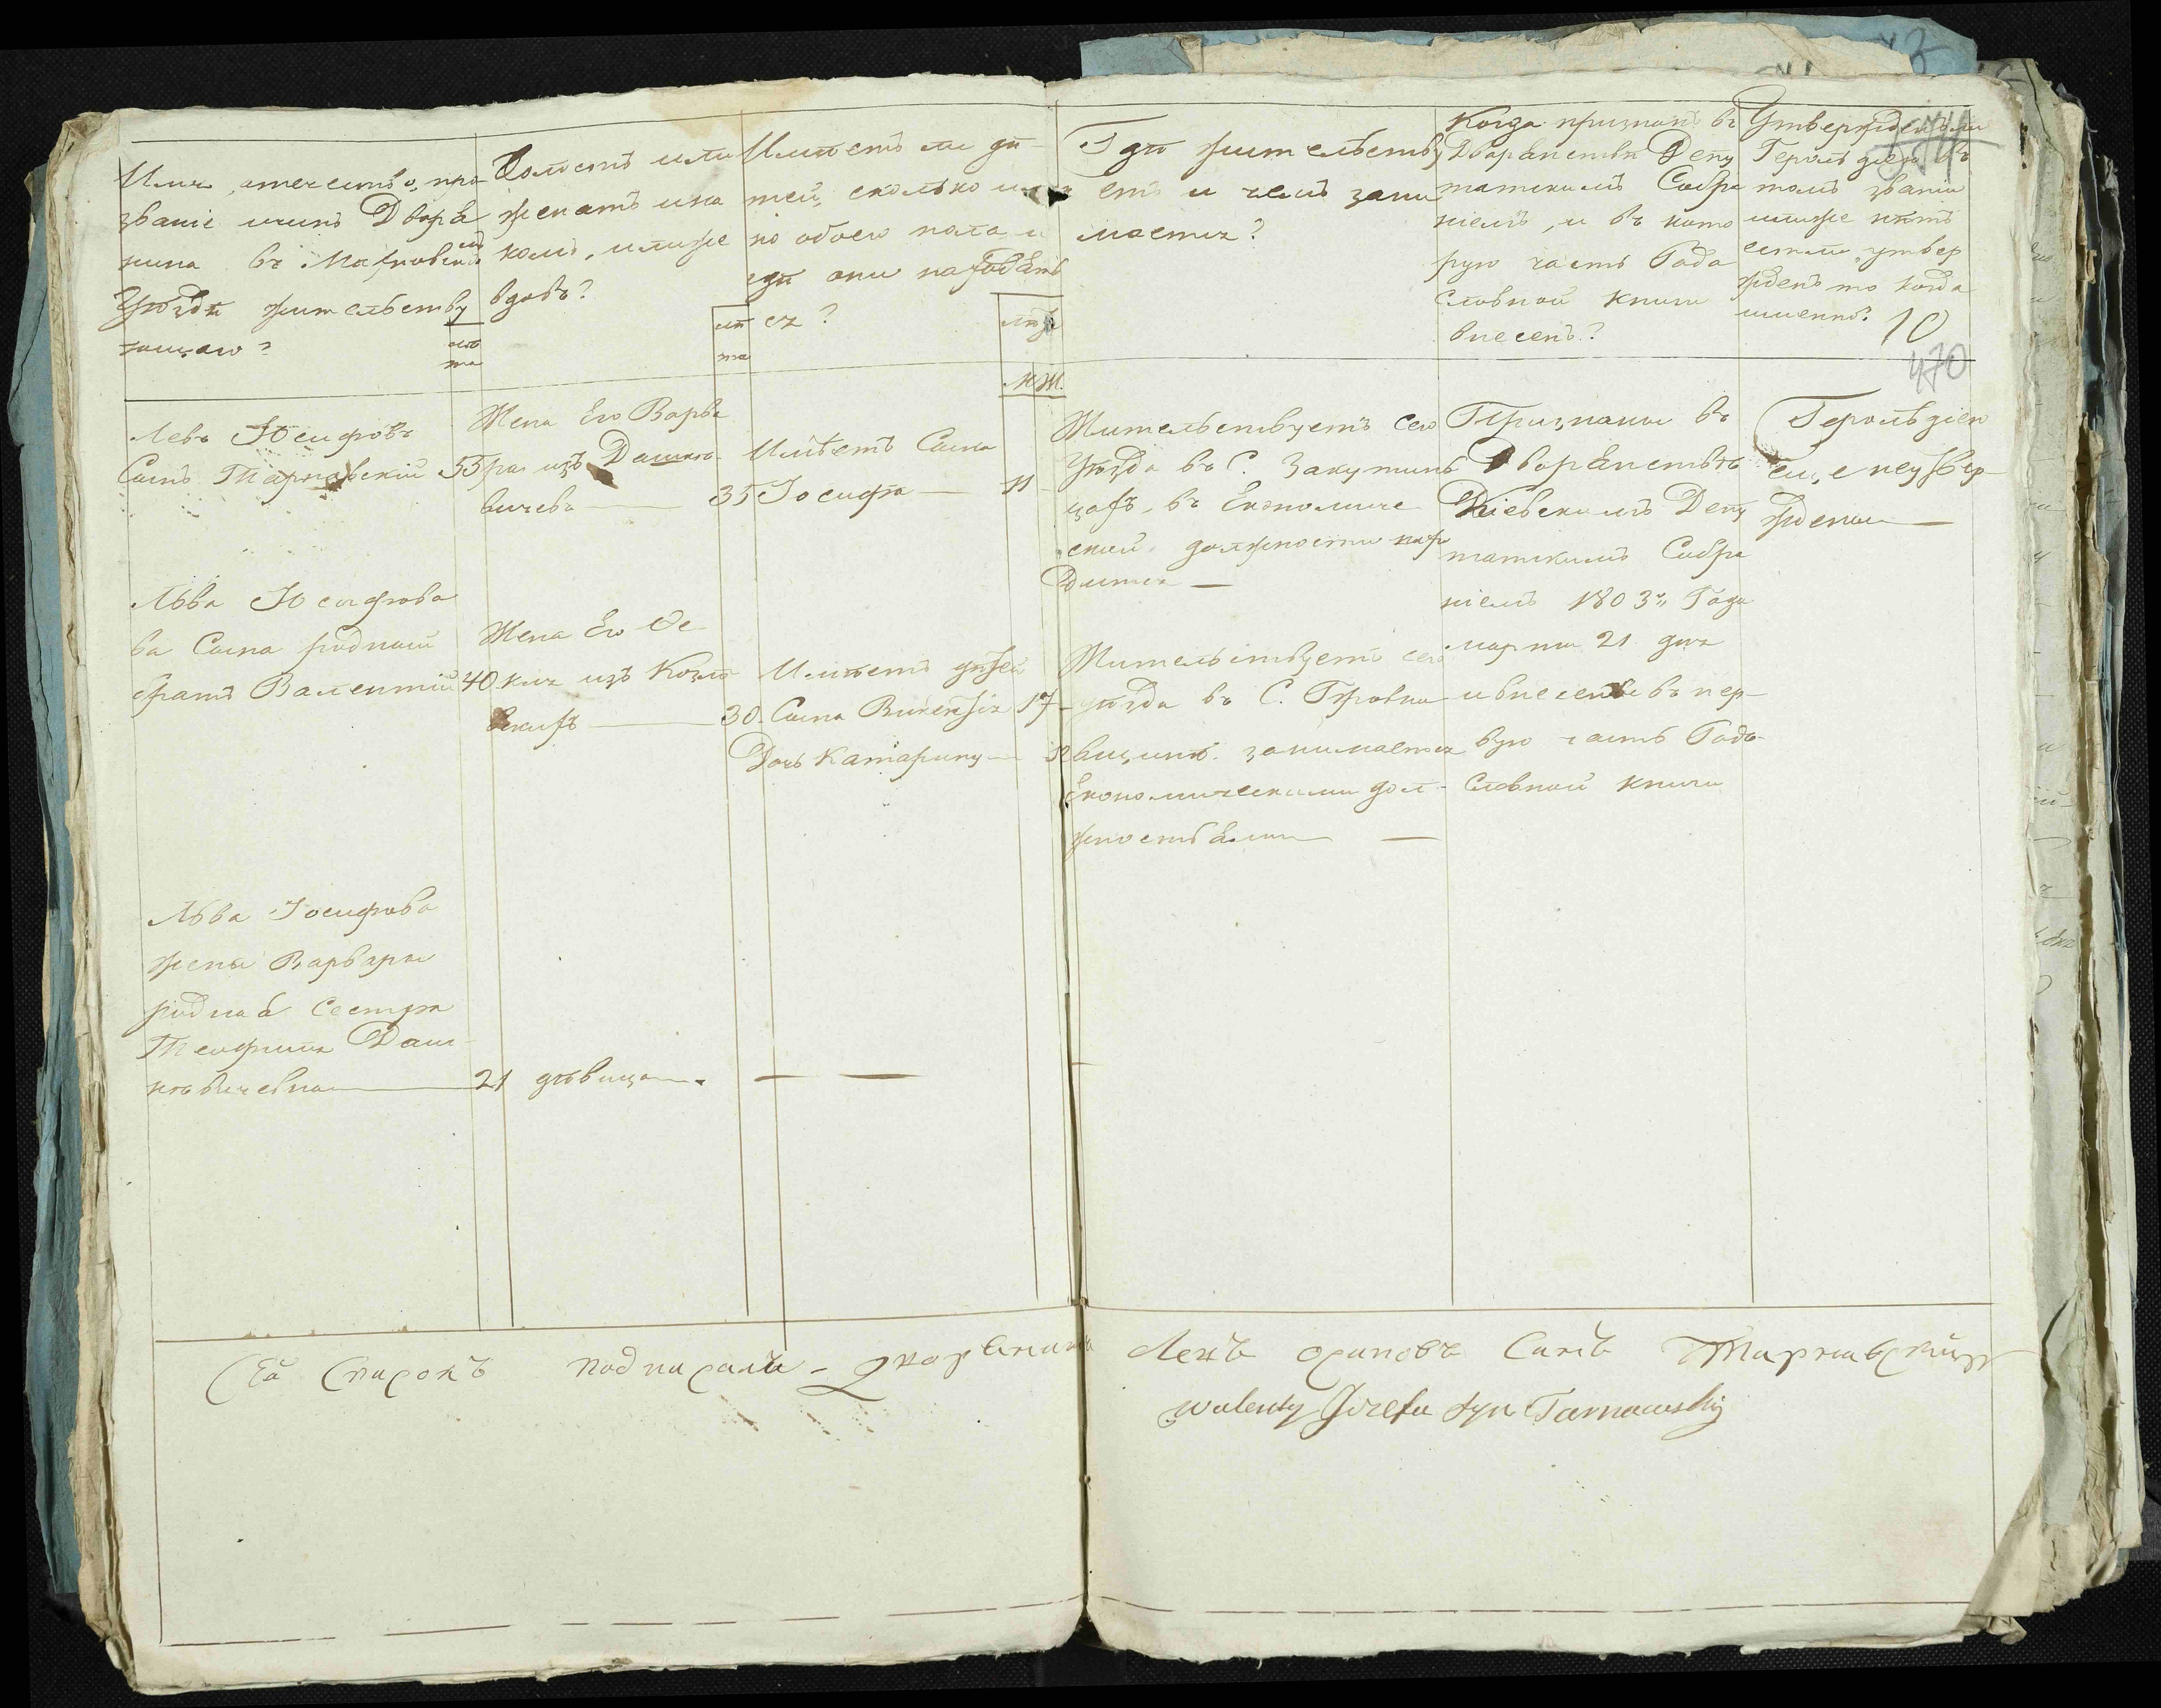 Имя, отечество, про
званіе и чинъ Дворя
нина въ Махновскомъ
Уѣздѣ жительству
ющаго?
лѣ
та
Холостъ или
женатъ и на
комъ, или же
вдовъ?
лѣ
та
Имѣетъ ли дѣ
тей, сколько и
но обоего пола и
гдѣ они находят
ся?
лѣт
М. Ж.
Гдѣ жительству
етъ и чемъ зани
мается?
Когда признанъ въ
Дворянствѣ Депу
татскимъ Собра
ніемъ, и въ кото
рую часть Родо
словной книги
внесенъ?
Утвержденъ ли
Герольдіею въ
томъ званіи
или же нѣтъ
естли утвер
жденъ то когда
именно?
10
470
Левъ Іосифовъ
Сынъ Тарнавскій 55
Жена Его Варва
ра изъ Дашке
вичевъ — 35
Имѣетъ Сына
Іосифа — 11
Жительствуетъ сего
Уѣзда въ С. Закутин
цахъ, въ Економиче
ской должности нахо
дится —
Признаны въ
Дворянствѣ
Кіевскимъ Депу
татскимъ Собра
ніемъ 1803 Года
марта 21 дня
и внесены въ пер-
вую часть Родо-
словной книги
Герольдіею
еще неутвер-
ждены —
Льва Іосифова
Сына родный
братъ Валентій 40
Жена Его Ѳе-
кля изъ Козло
вскихъ — 30.
Имѣетъ дѣтей
Сына Викентія 17
Дочь Катарину — 12
Жительствуетъ сего
уѣзда въ С.
занимается
Економическими дол-
жностями —
Льва Іосифова
жены Варвары
родная Сестра
Теофиля Даш-
кевичевна — 21
дѣвица — . — —
Сей Списокъ подписали - Дворянинъ Левъ Осиповъ Сынъ Тарнавскій
Walenty Jozefa syn Tarnawski